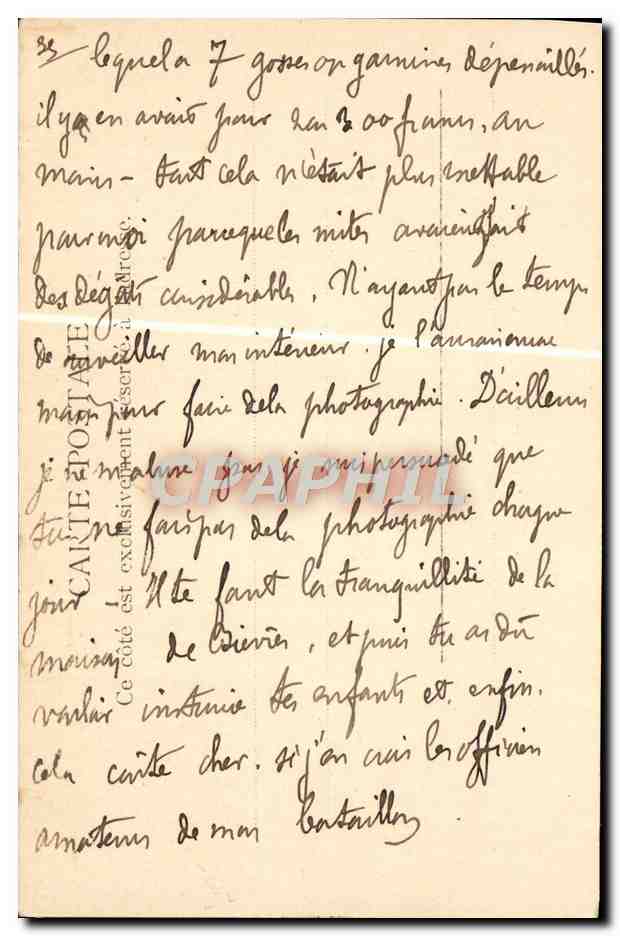 lequel a 7 gosses ou gamines dépenaillés.
il y a en avait pour 2 ou 300 francs, au
moins - tout cela n'était plus mettable
pour moi parceque les mites avaient fait
des dégâts considérables. N'ayant pas le temps
de surveiller mon intérieur. je l'aurai encore
moins pour faire de la photographie. D'ailleurs
je ne m'abuse pas, je suis persuadé que
tu ne fais pas de la photographie chaque
jour. Il te faut la tranquillité de la
maison de Bièvres, et puis tu as dû
vouloir instruire tes enfants et, enfin,
cela coûte cher. si j'en crois les officiers
amateurs de mon bataillon.
CARTE POSTALE
Ce côté est exclusivement réservé à l'adresse.
CPAPHIL